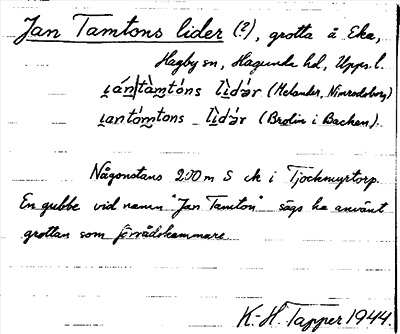 Jan Tamtons lider (?), grotta å Eka,
Hagby sn, Hagunda hd, Upps. l.
i̯án|tàm̥tóns lìdə́r (Melander, Nimrodsborg)
i̯antóm̥tons lìdə́r (Brolin i Backen).
Någonstans 200 m S ck i Tjockmyrtorp.
En gubbe vid namn "Jan Tamton" sägs ha använt
grottan som förrådskammare.
K.-H. Tapper 1944.